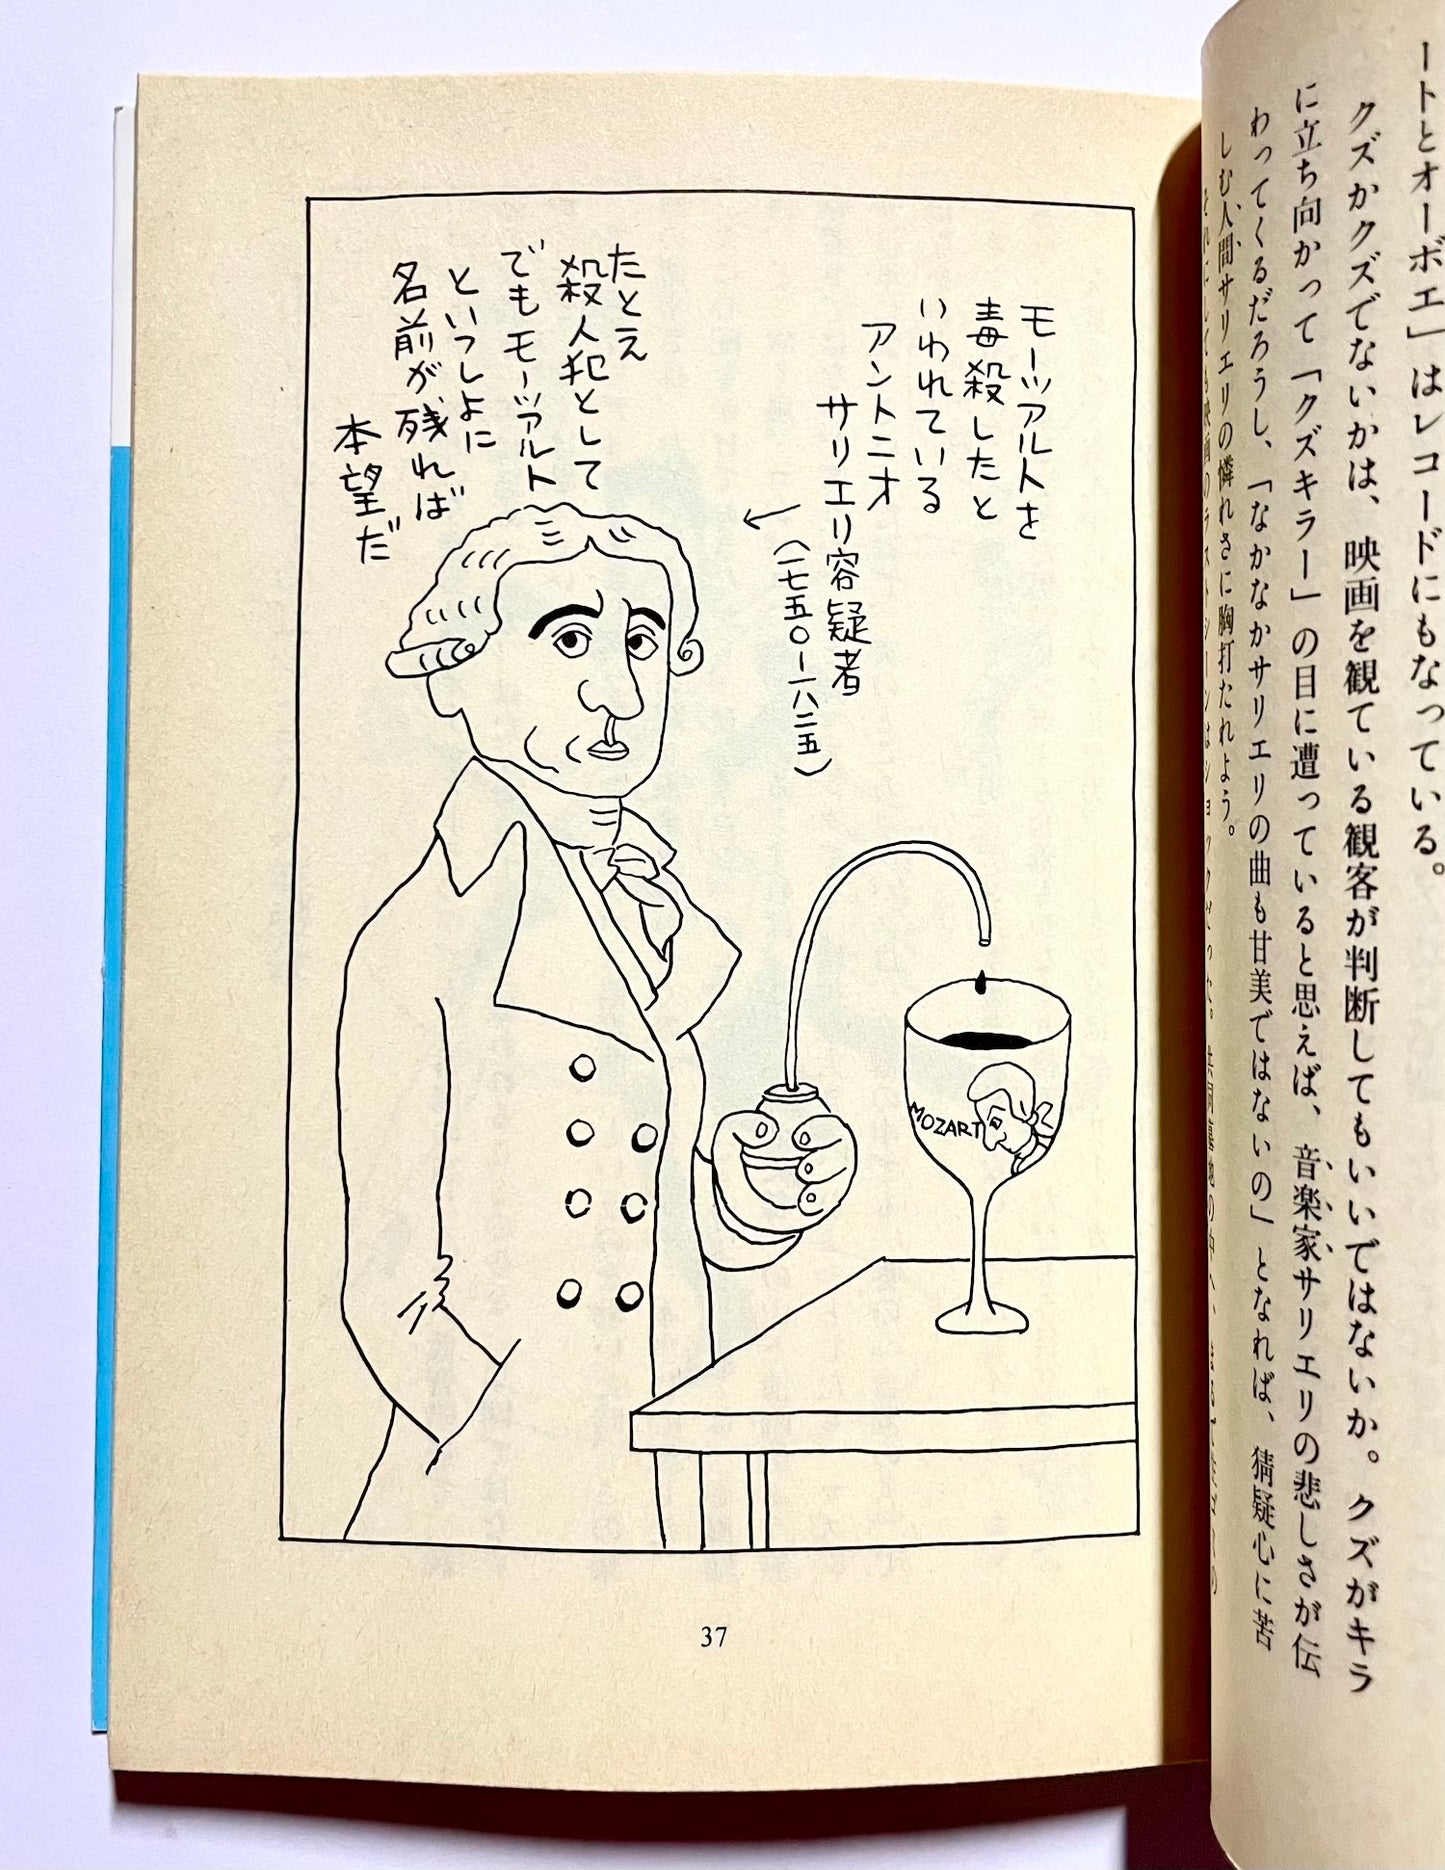 ートとオーボエ」はレコードにもなっている。
クズかクズでないかは、映画を観ている観客が判断してもいいではないか。クズがキラ
に立ち向かって「クズキラー」の目に遭っていると思えば、音楽家サリエリの悲しさが伝
わってくるだろうし、「なかなかサリエリの曲も甘美ではないの」となれば、猜疑心に苦
しむ人間サリエリの憐れさに胸打たれよう。
それにしても映画のラストシーンはショックだった。共同墓地の
モーツァルトを
毒殺したと
いわれている
アントニオ
サリエリ容疑者
(一七五〇ー一八二五)
たとえ
殺人犯として
でもモーツァルト
といっしょに
名前が残れば
本望だ
MOZART
37